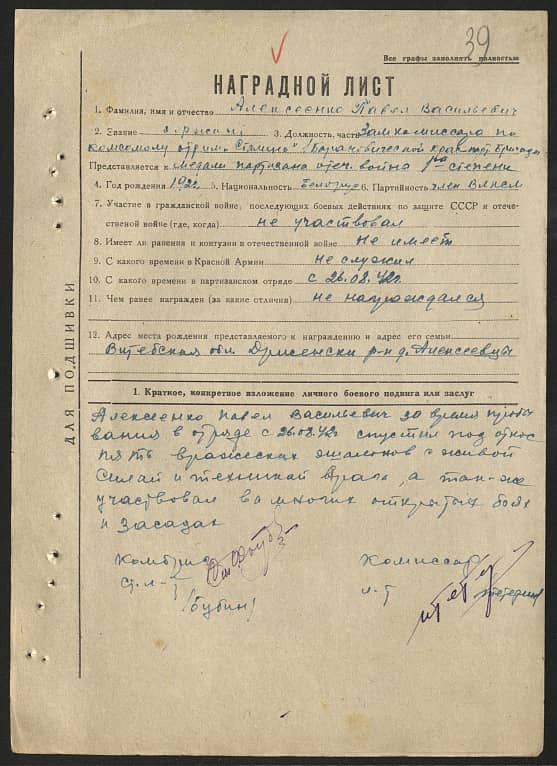 39
Все графы заполнять полностью
НАГРАДНОЙ ЛИСТ
1. Фамилия, имя и отчество Алексеенко Павел Васильевич
2. Звание 3. Должность, часть Зам комиссара по
комсомолу отряда "Сталина"
Представляется к медали партизана отеч. война 1ва степени
4. Год рождения 5. Национальность Белорус 6. Партийность член ВЛКСМ
7. Участие в гражданской войне, последующих боевых действиях по защите СССР и отече-
ственой войне (где, когда) не участвовал
8. Имеет ли ранения и контузии в отечественной войне Не имеет
9. С какого времени в Красной Армии не служил
10. С какого времени в партизанском отряде с 26.08.42г
11. Чем ранее награжден (за какие отличия) не награждался
12. Адрес места рождения представляемого к награждению и адрес его семьи
Витебская обл. Дрисенски р-н д. Алексеевцы
ДЛЯ ПОДШИВКИ
1. Краткое, конкретное изложение личного боевого подвига или заслуг
Алексеенко Павел Васильевич за время пребы
вания в отряде с 26.08.42г спустил под откос
пять вражеских эшалонов с живой
силай и техникой врага, а так-же
участвовал ва многих открытых боях
и засадах
Комбриг Комиссар
ст. л-т л-т
(Бубин)